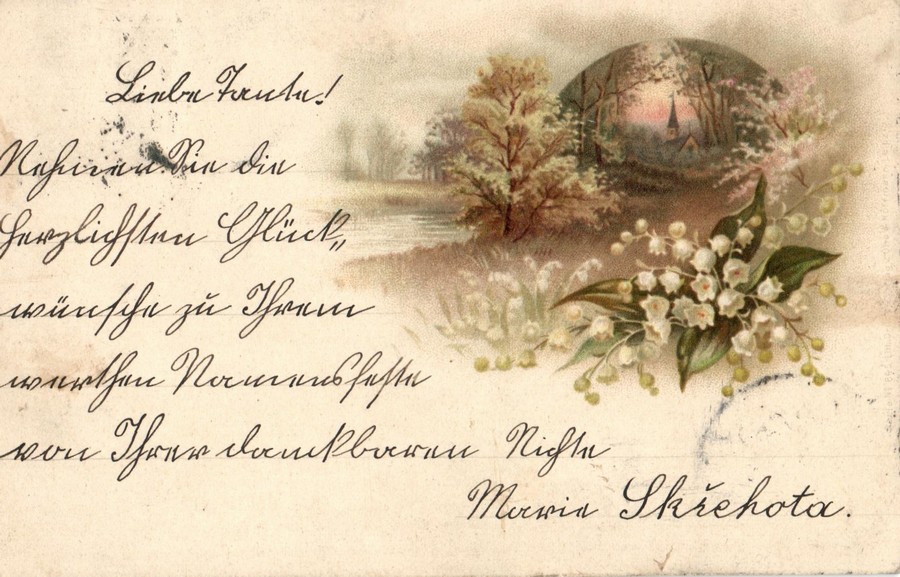 Liebe Tante!
Nehmen Sie die
herzlichsten Glück„
wünsche zu Ihrem
werthen Namensfeste
von Ihrer dankbaren Nichte
Marie Skřehota.